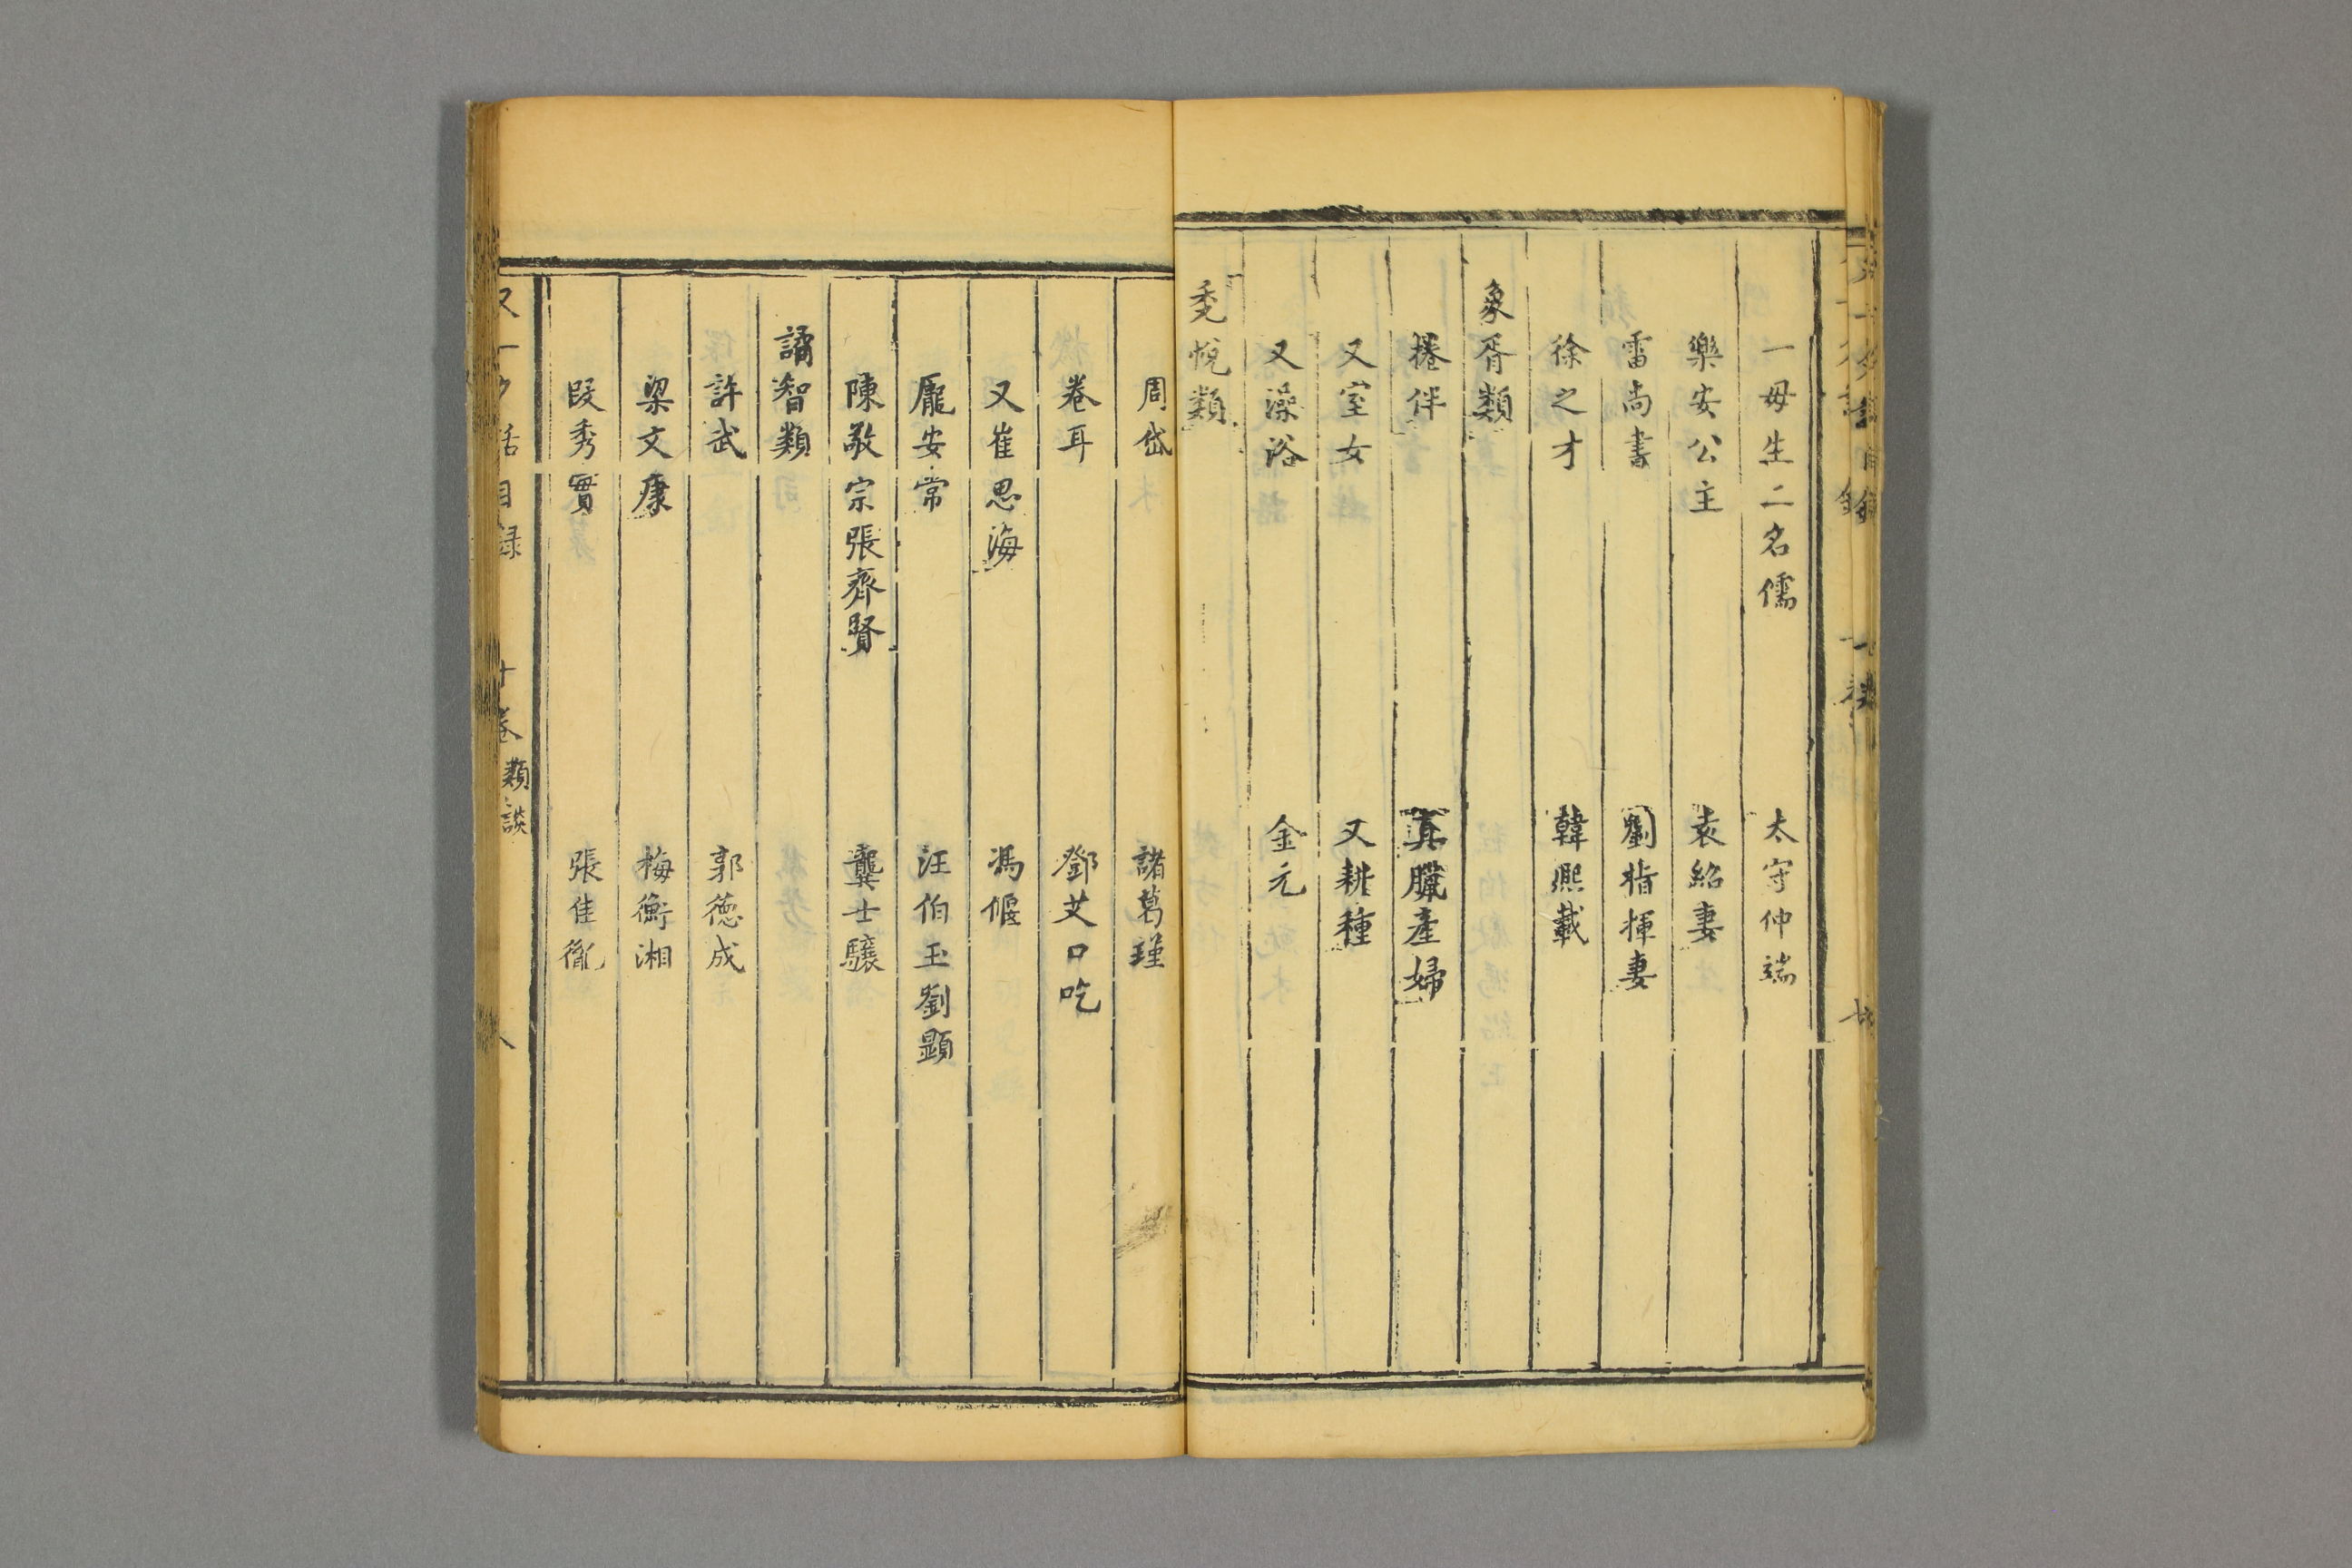 一母生二名儒　太守仲端
樂安公主　袁紹妻
雷尚書　劉指揮妻
徐之才　韓熙載
象胥類
捲伴　真臘產婦
又室女　又耕種
又澡浴　金元
委悅類
周岱　諸葛瑾
卷耳　鄧艾口吃
又崔思海　馮偃
龐安常　汪伯玉劉顯
陳敬宗張齊賢　龔士驤
譎智類
許武　郭德成
梁文康　梅衡湘
段秀實　張佳胤
又一夕話目録　十卷 類談　八